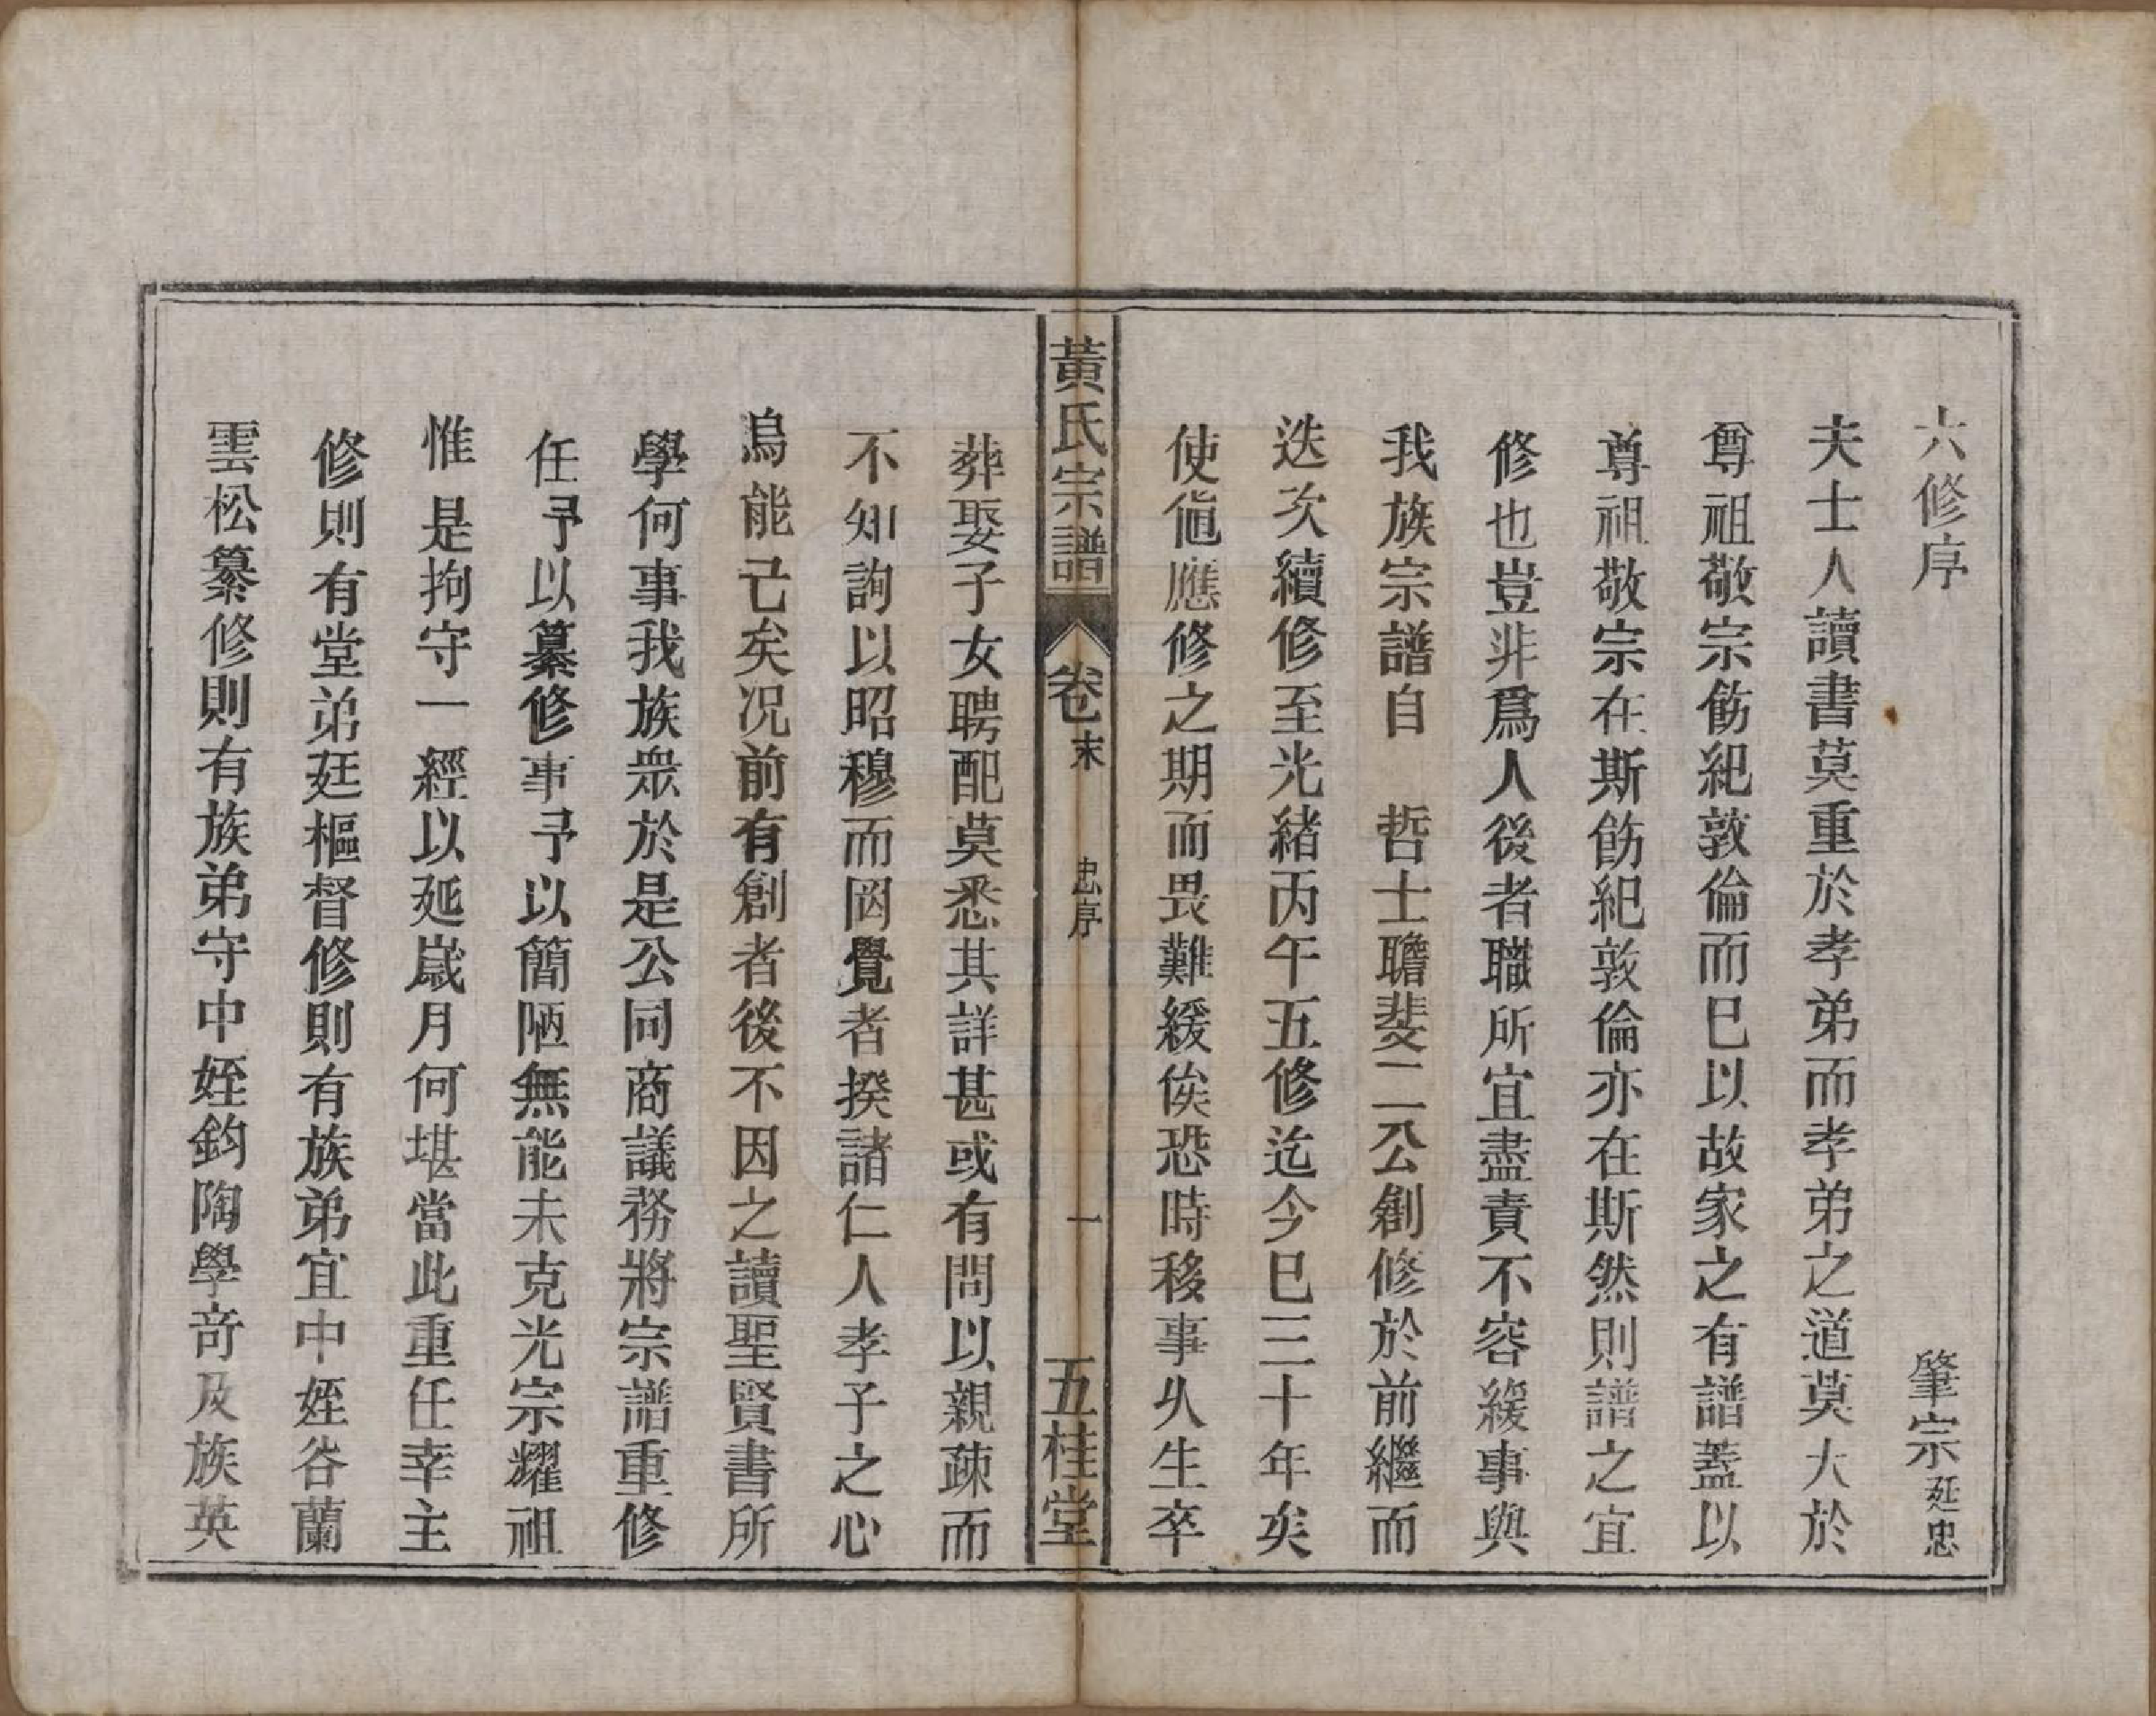 六修序 肇宗廷忠
夫士人讀書莫重於孝弟而孝弟之道莫大於
尊祖敬宗飭紀敦倫而已以故家之有譜蓋以
尊祖敬宗在斯飭紀敦倫亦在斯然則譜之宜
修也豈非爲人後者職所宜盡責不容緩事與
我族宗譜自 哲士聸斐二公創修於前繼而
迭次續修至光緒丙午五修迄今巳三十年矣
使值應修之期而畏難緩俟恐時移事久生卒
黃氏宗譜 卷末 忠序 一 五桂堂
葬娶子女聘配莫悉其詳甚或有問以親疎而
不知詢以昭穆而罔覺者揆諸仁人孝子之心
烏能已矣况前有創者後不因之讀聖賢書所
學何事我族衆於是公同商議務將宗譜重修
任予以纂修事予以簡陋無能未克光宗耀祖
惟是拘守一經以延歲月何堪當此重任幸主
修則有堂弟廷樞督修則有族弟宜中姪谷蘭
雲松纂修則有族弟守中姪鈞陶學奇及族英